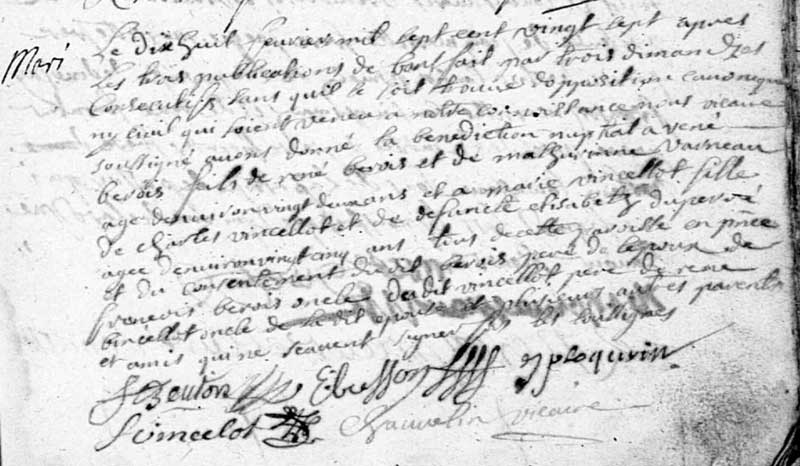 Mari
Le dixhuit feuvrier mil sept cent vingt sept apres
les trois publications de bans fait par trois dimanches
consecutifs sans quil se soit trouvé dopposition canonique
ny civil qui soient veneu a notre connoissance nous vicaire
soussigné avons donné la benediction nuptial a rené
berois fils de rené berois et de mathurinne vasneau
age denviron vingt deux ans et a marie vincellot fille
de charles vincellot et de defuncte elisabeth duperré
agee denviron vingt cinq ans tous de cette paroisse en pnce
et du consentement dudit berois pere de lepoux de
francois berois oncle dudit vincellot pere de rene
vincellot oncle de la dit epouse et plusieurs autres parents
et amis qui ne scavent signer fors les soussignes
Ebusson
f vincelot
vicaire